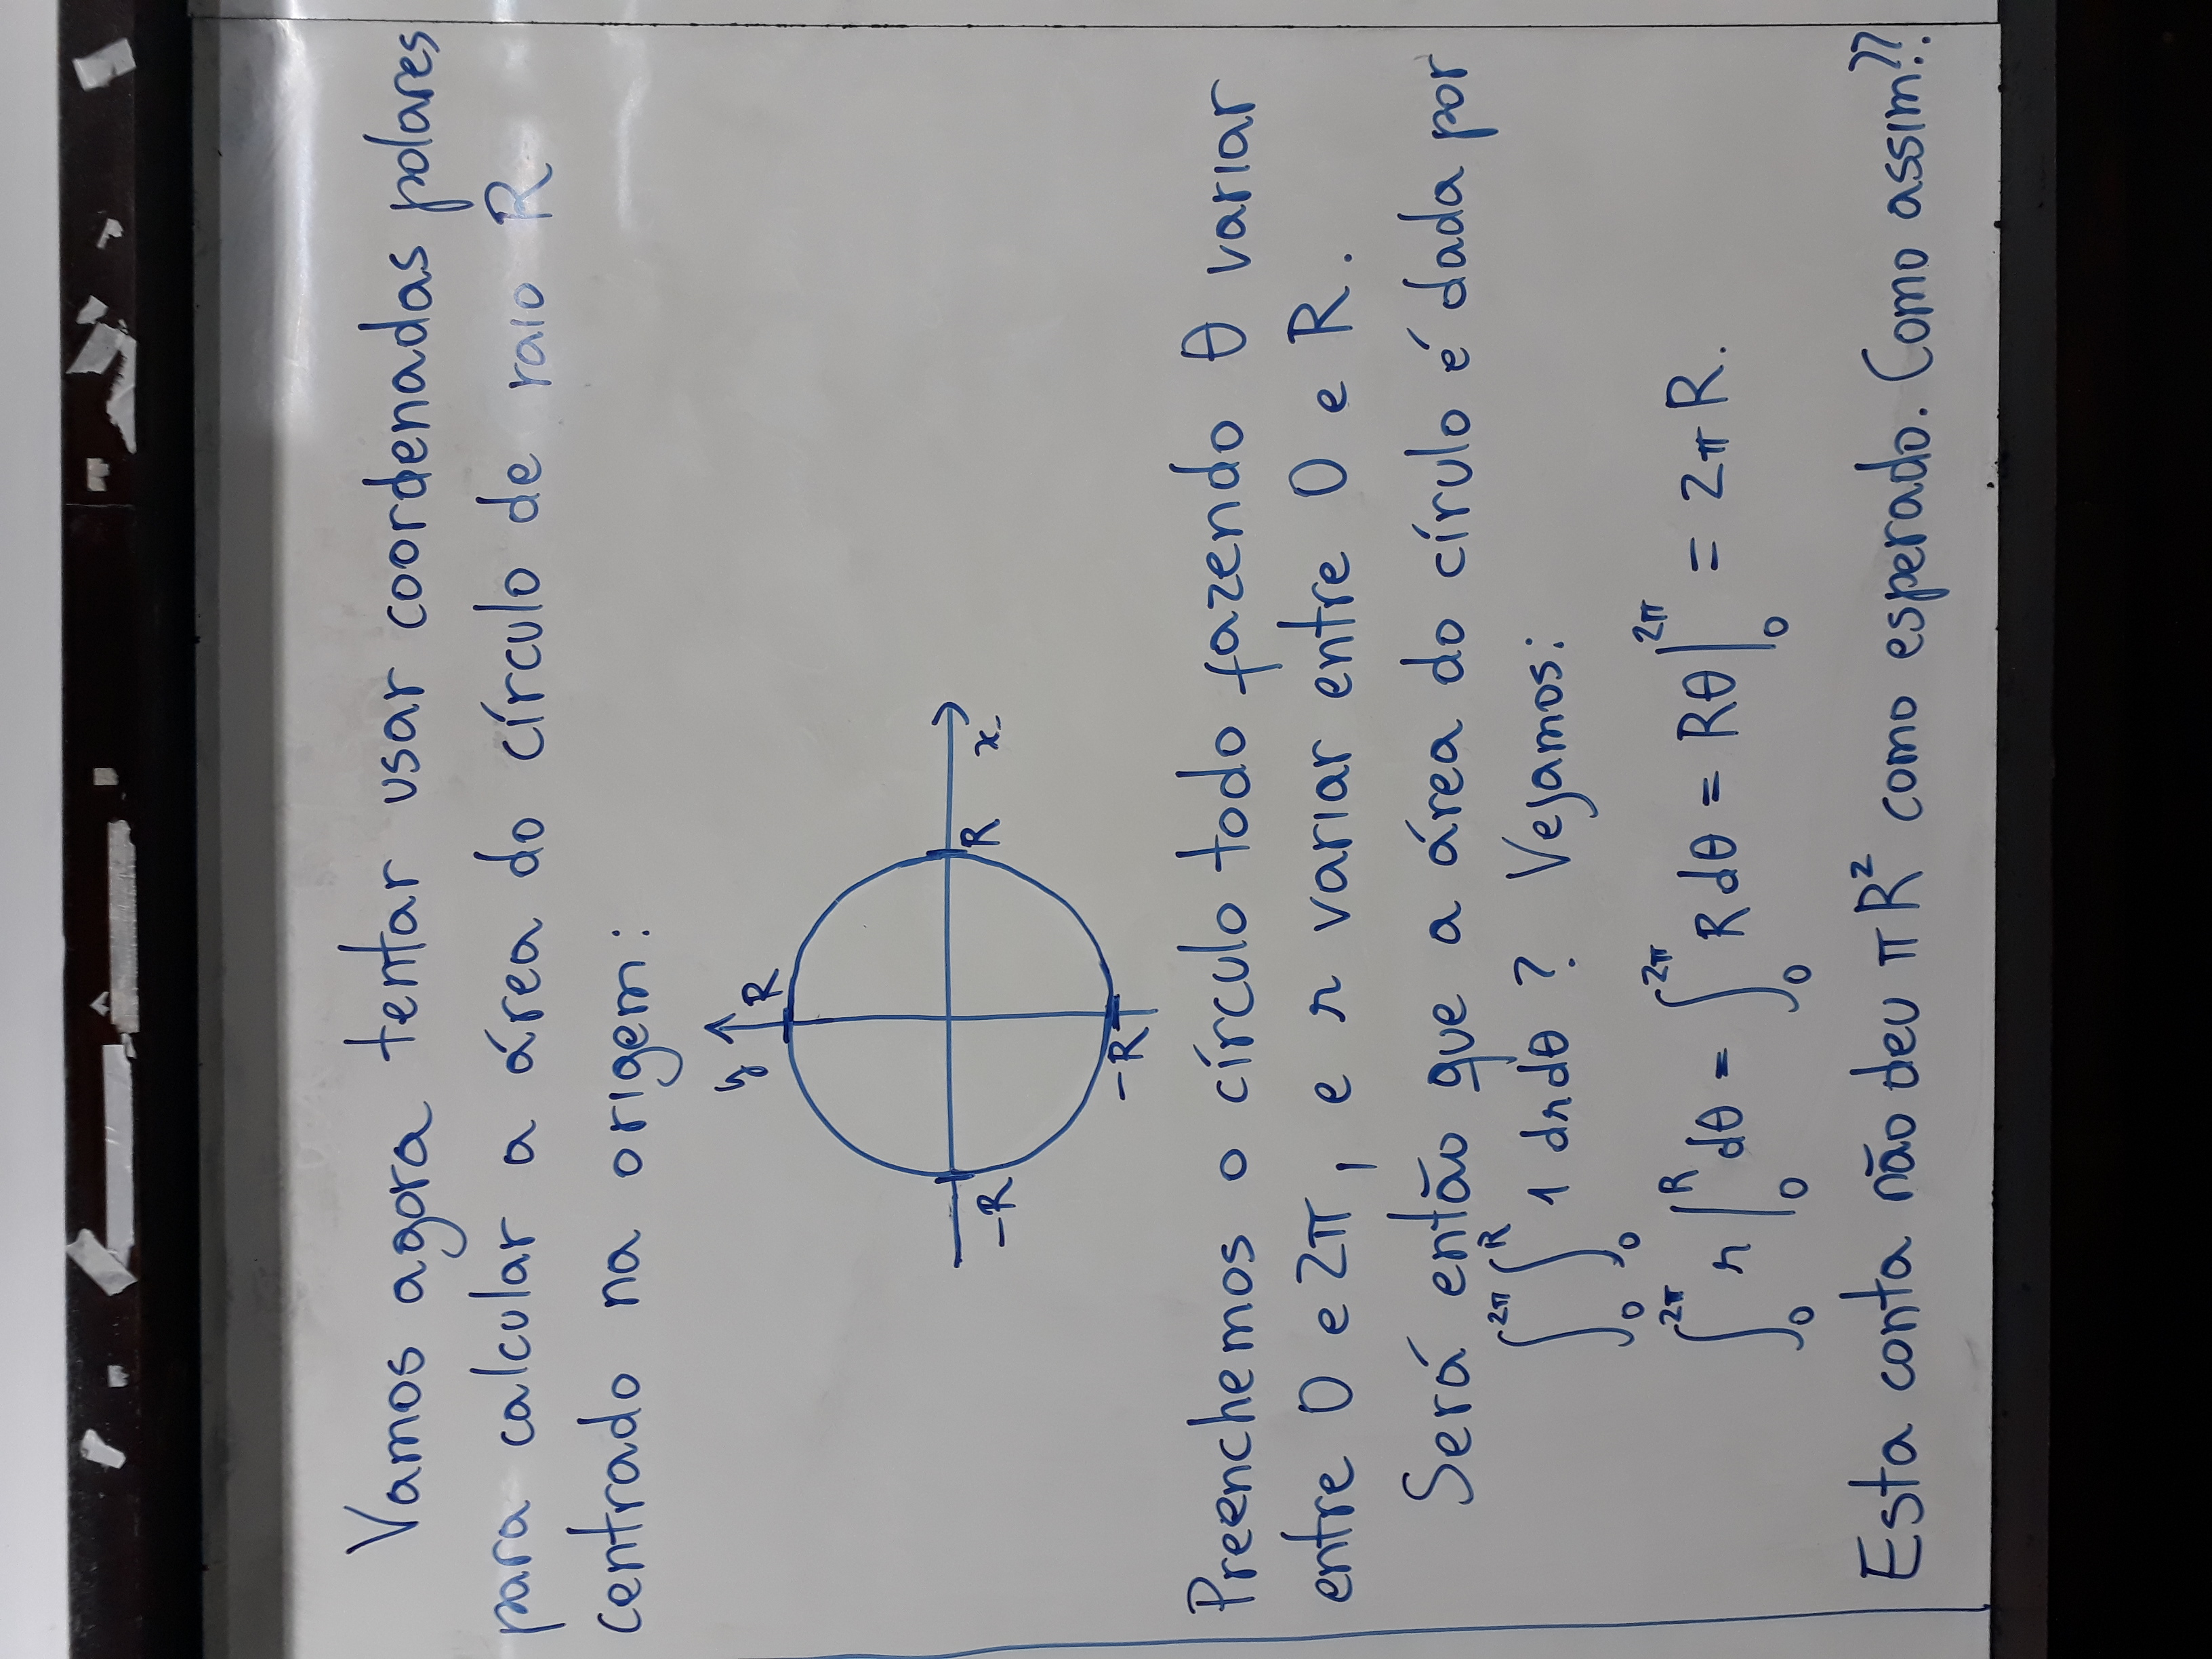 Vamos agora tentar usar coordenadas polares
para calcular a área do círculo de raio R
centrado na origem:
y R
-R R x
-R
Preenchemos o círculo todo fazendo θ variar
entre 0 e 2π, e r variar entre 0 e R.
Será então que a área do círulo é dada por
∫₀^2π ∫₀^R 1 dr dθ ? Vejamos:
∫₀^2π r |₀^R dθ = ∫₀^2π R dθ = Rθ |₀^2π = 2πR.
Esta conta não deu πR² como esperado. Como assim??